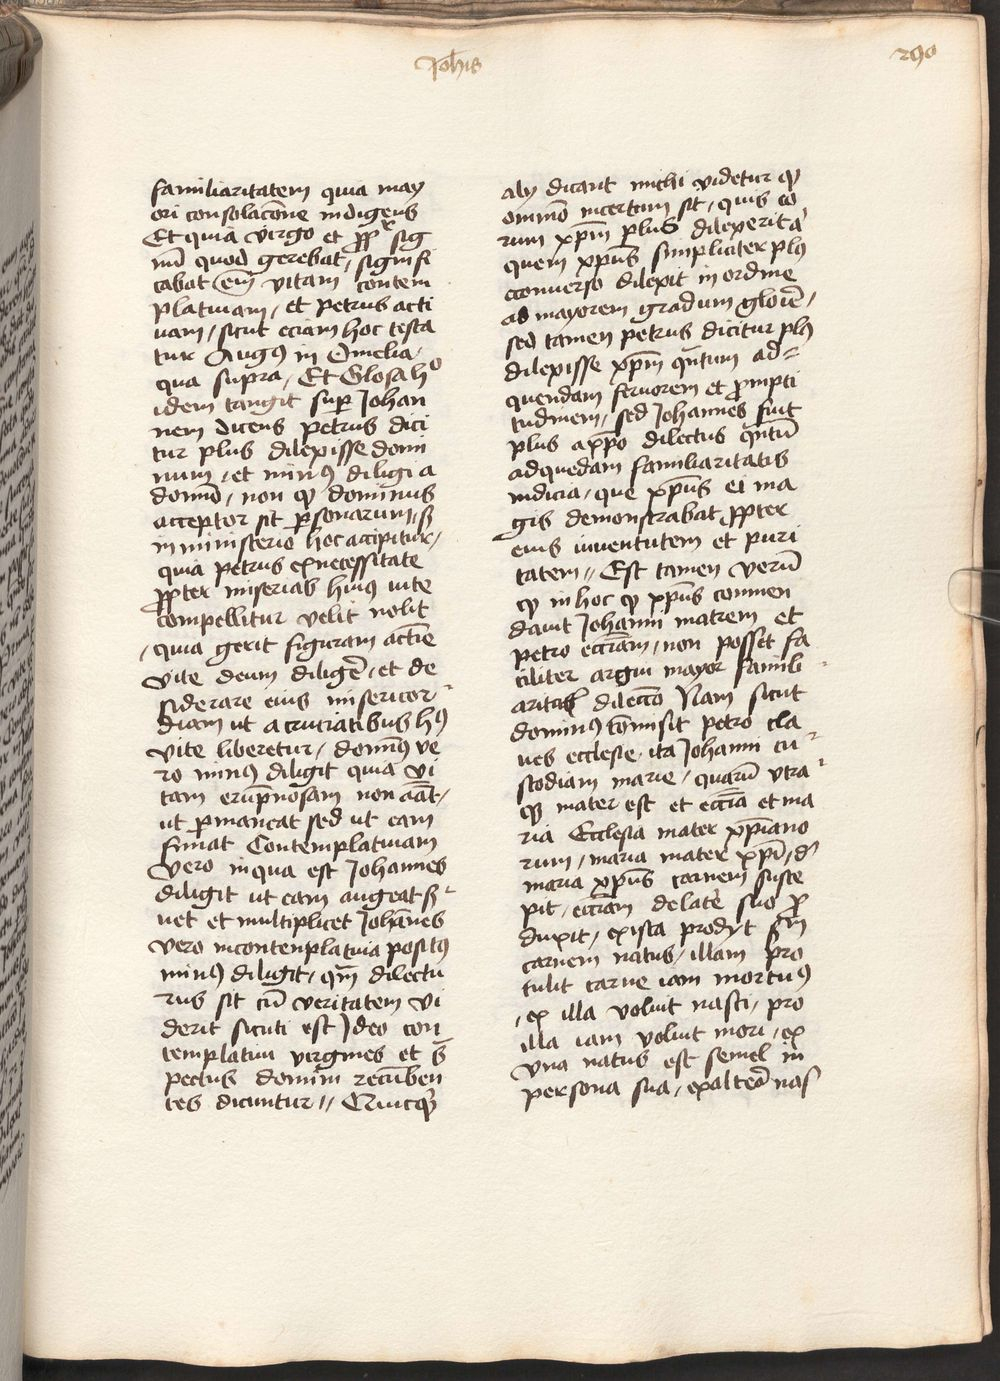 Joh̄is
290
familiaritatem quia may
ori consolac̄one indigens
Et quia virgo et pp̄ sig
nū quod gerebat / signifi
cabat em̄ vitam contem
platiuam / et Petrus acti
uam / sicut eciam hoc testa
tur Augꝰ in Omelia /
qua supra / Et Glosa h⁰
idem tangit sup̄ Johan
nem dicens petrus dici
tur plus dilexisse domi
num / et minꝰ diligi a
domīo / non ꝙ dominus
acceptor sit ꝑsonarum / sꝫ
in ministerio hoc accipitur /
quia petrus ex necessitate
ꝓpter miserias huiꝰ uite
compellitur velit nolit
/ quia gerit figuram actīe
vite deum diligē̄ / et de
siderare eius misericor⸗
diam ut a cruciatibus hꝰ
vite liberetur / domīꝰ ve
ro minꝰ diligit quia vi
tam erūpnosam non aāt /
ut ꝑmaneat sed ut eam
finiat Contemplatiuam
vero in qua est Johannes
diligit ut eam augeat sꝫ⸗
uet et multiplicet Johānes
vero in contemplatiua positꝰ
minꝰ diligit / qm̄ dilectu
rus sit cū veritatem vi
derit sicuti est Ideo con
templatiui virgines et s̄
pectus domini recūben
tes dicuntur // Quicqꝫ
alij dicant michi videtur ꝙ
omnīo incertum sit / quis eo
rum xp̄m plus dilexerit
quem xp̄us simpliciter plꝰ
econuerso dilexit in ordine
ad mayorem gradum glorīe /
sed tamen petrus dicitur plꝰ
dilexisse xp̄m qn̄tum ad⸗
quendam feruorem et ꝓmpti
tudinem / sed Johannes fuit
plus a xp̄o dilectus qn̄tū
ad quedam familiaritatis
indicia / que xp̄us ei ma
gis demonstrabat ꝓpter
eius iuuentutem et puri
tatem // Est tamen verū
ꝙ in hoc ꝙ xp̄us commen
dauit Johanni matrem et
petro eccīam / non posset fa
ciliter argui mayor famili⸗
aritatis dileccō Nam sicut
dominꝰ cōmisit petro cla
ues ecclesie / ita Johanni cu⸗
stodiam marie / quarū vtra⸗
qꝫ mater est et eccīa et ma
ria Ecclesia mater xp̄iano
rum / maria mater xp̄i / d̄
maria xp̄us carnem susce
pit / eccīam de latē suo ꝓ
duxit / ex ista prodijt sm̄
carnem natus / illam pro
tulit carne iam mortuꝰ
/ ex illa voluit nasci / pro
illa iam voluit mori / ex
vna natus est semel in
persona sua / ex alterā nas